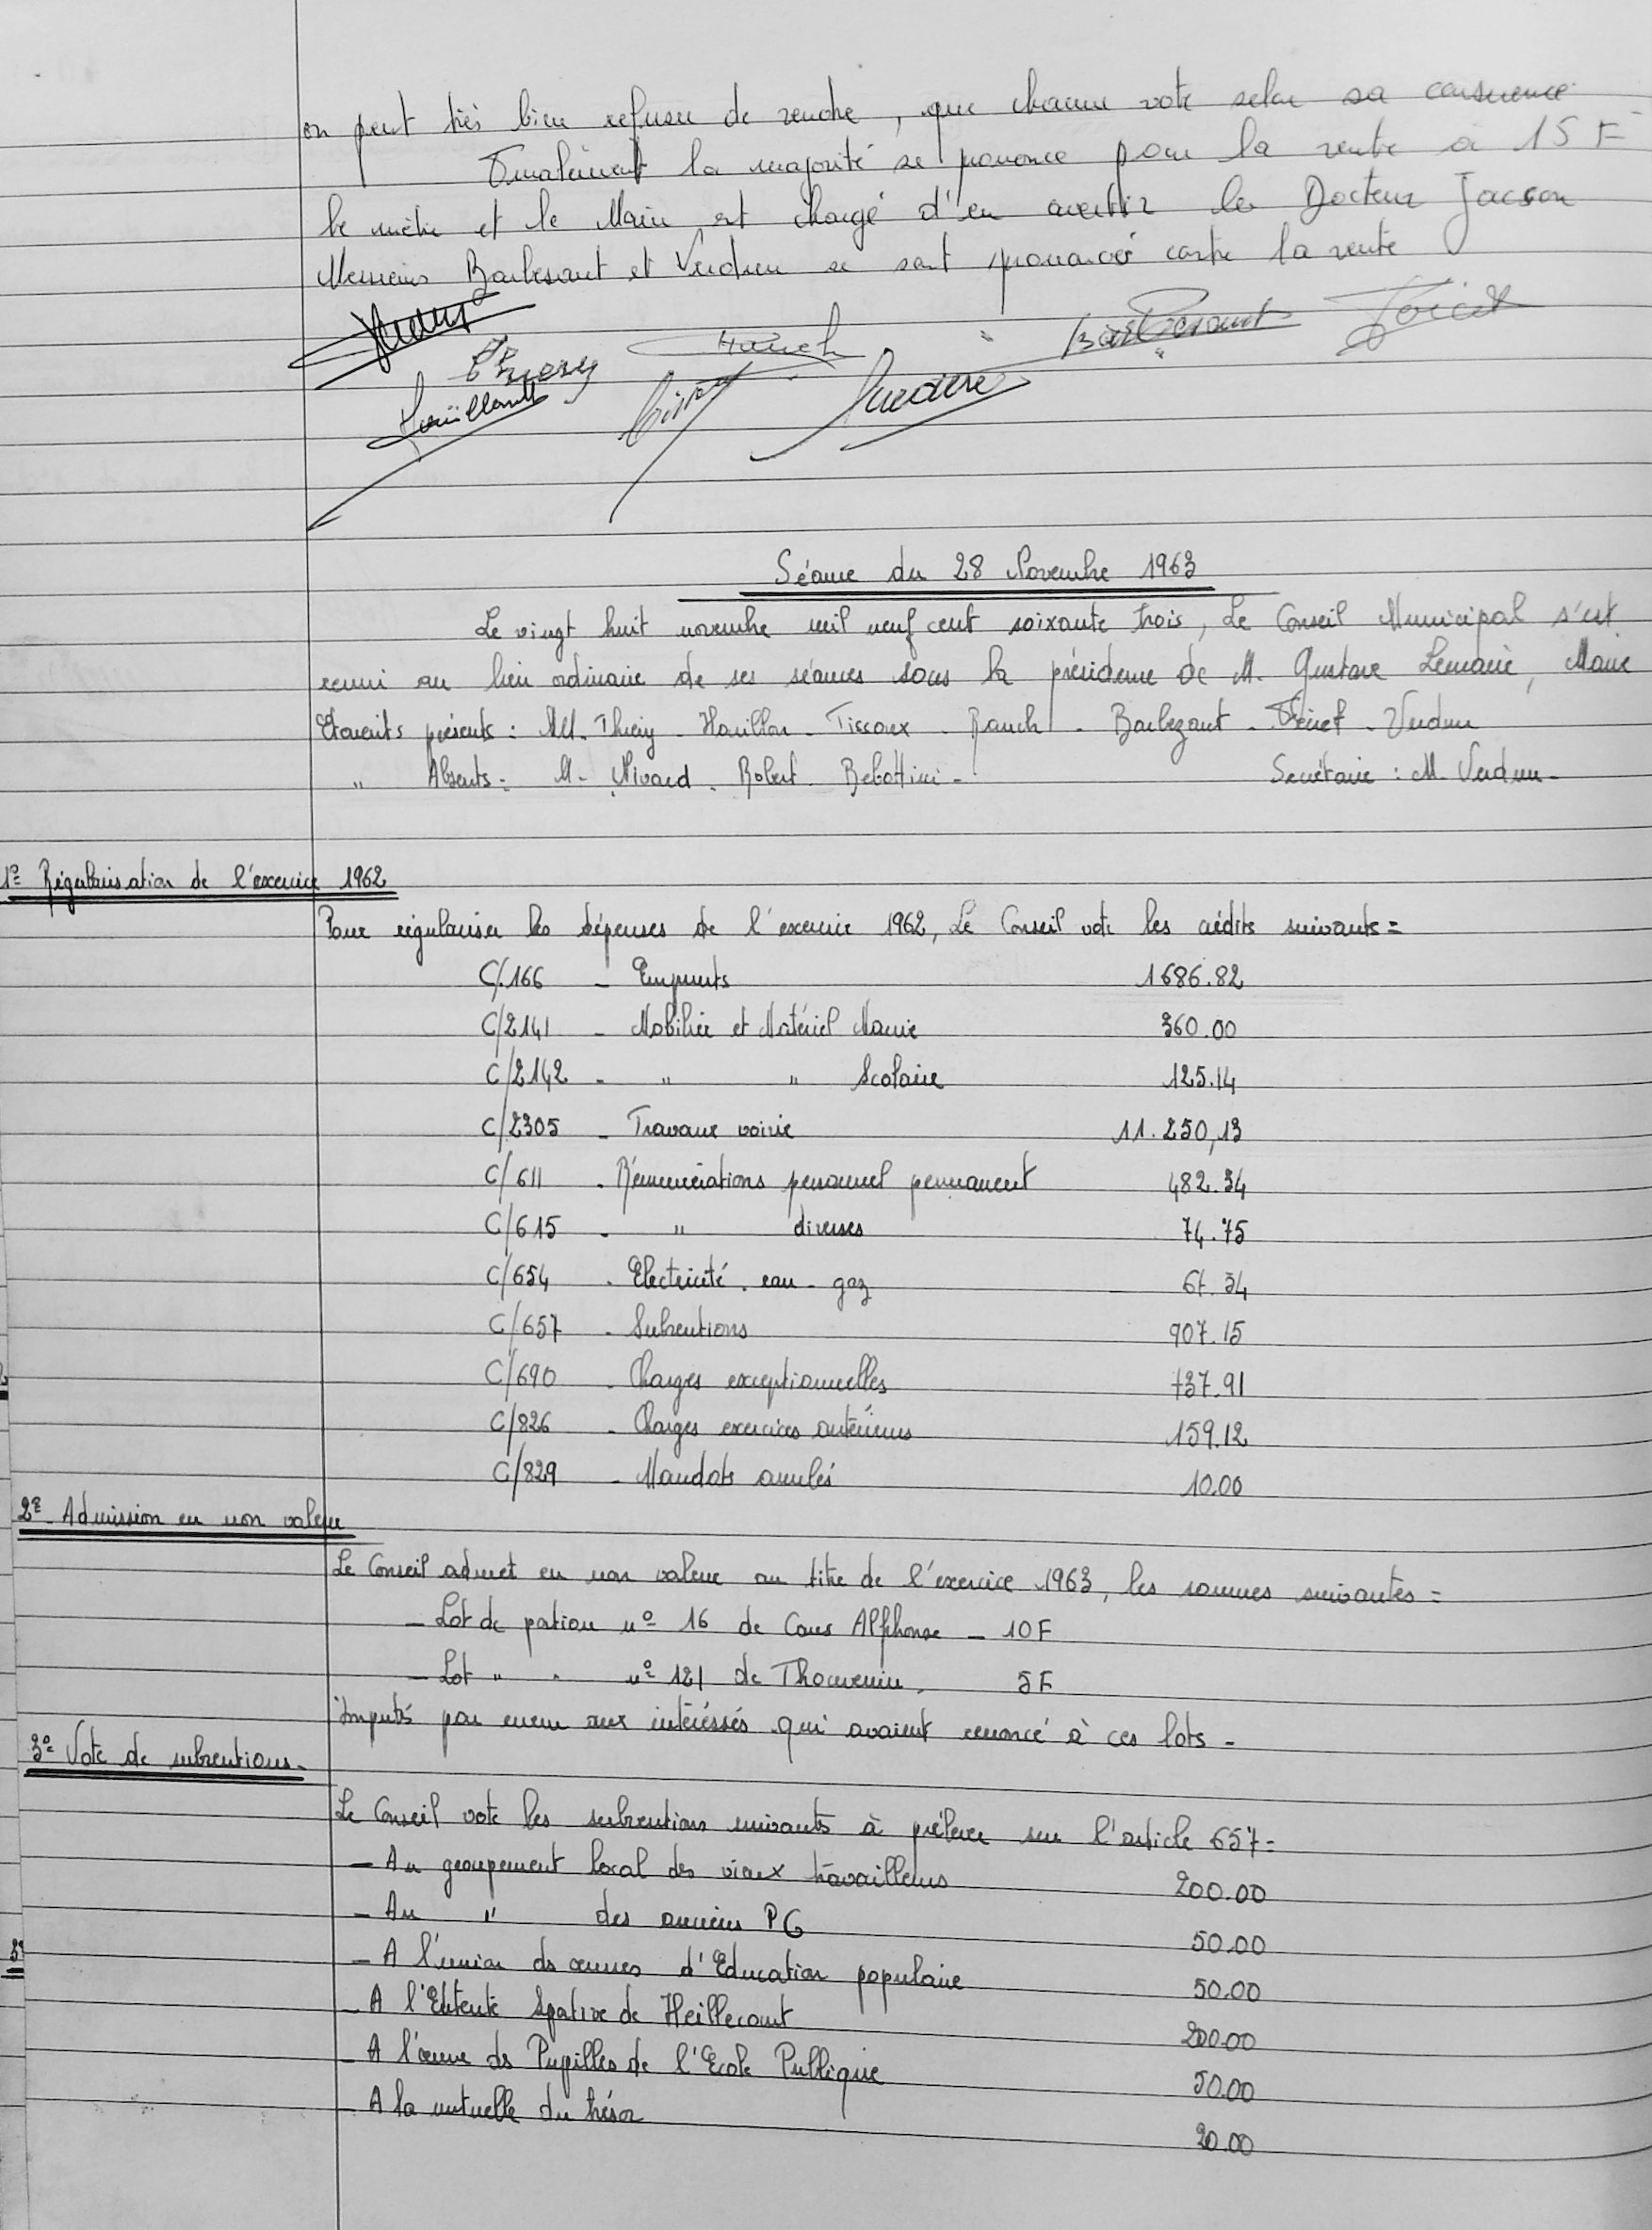 on peut très bien refuser de vendre, que chacun vote selon sa conscience.
Finalement la majorité se prononce pour la vente à 15 F
le mètre et le Maire est chargé d'en avertir le Docteur Jacson
Messieurs Barbezant et Verdun se sont prononcés contre la vente
Thiery
Rauch
Barbezant
Houillon
Séance du 28 Novembre 1963
Le vingt huit novembre mil neuf cent soixante trois, Le Conseil Municipal s'est
réuni au lieu ordinaire de ses séances sous la présidence de M. Gustave Lemaire, Maire
Etaients présents : MM. Thiery - Houillon - Tissoux - Rauch - Barbezant - Verdun
" Absents - M. Nivard - Robert - Rebottini -
Secrétaire : M. Verdun -
1º Régularisation de l'exercice 1962
Pour régulariser les dépenses de l'exercice 1962, Le Conseil vote les crédits suivants =
C/.166 - Emprunts 1686.82
C/2141 - Mobilier et Matériel Mairie 360.00
C/2142 - " " Scolaire 125.14
C/2305 - Travaux voirie 11.250,13
C/611 - Rémunérations personnel permanent 482.34
C/615 - " diverses 74.75
C/654 - Electricité. eau - gaz 67.34
C/657 - Subventions 907.15
C/690 - Charges exceptionnelles 737.91
C/826 - Charges exercices antérieurs 159.12
C/829 - Mandats annulés 10.00
2º - Admission en non valeur
Le Conseil admet en non valeur au titre de l'exercice 1963, les sommes suivantes =
- Lot de portion nº 16 de Cours Alphonse - 10 F
- Lot " " nº 121 de Thouvenin - 5 F
Imputés par erreur aux intéressés qui avaient renoncé à ces lots -
3º Vote de subventions -
Le Conseil vote les subventions suivants à prélever sur l'article 657 =
- Au groupement local des vieux travailleurs 200.00
- Au " des anciens PG 50.00
- A l'union des œuvres d'Education populaire 50.00
- A l'Entente Sportive de Heillecourt 200.00
- A l'œuvre des Pupilles de l'Ecole Publique 50.00
- A la mutuelle du trésor 20.00